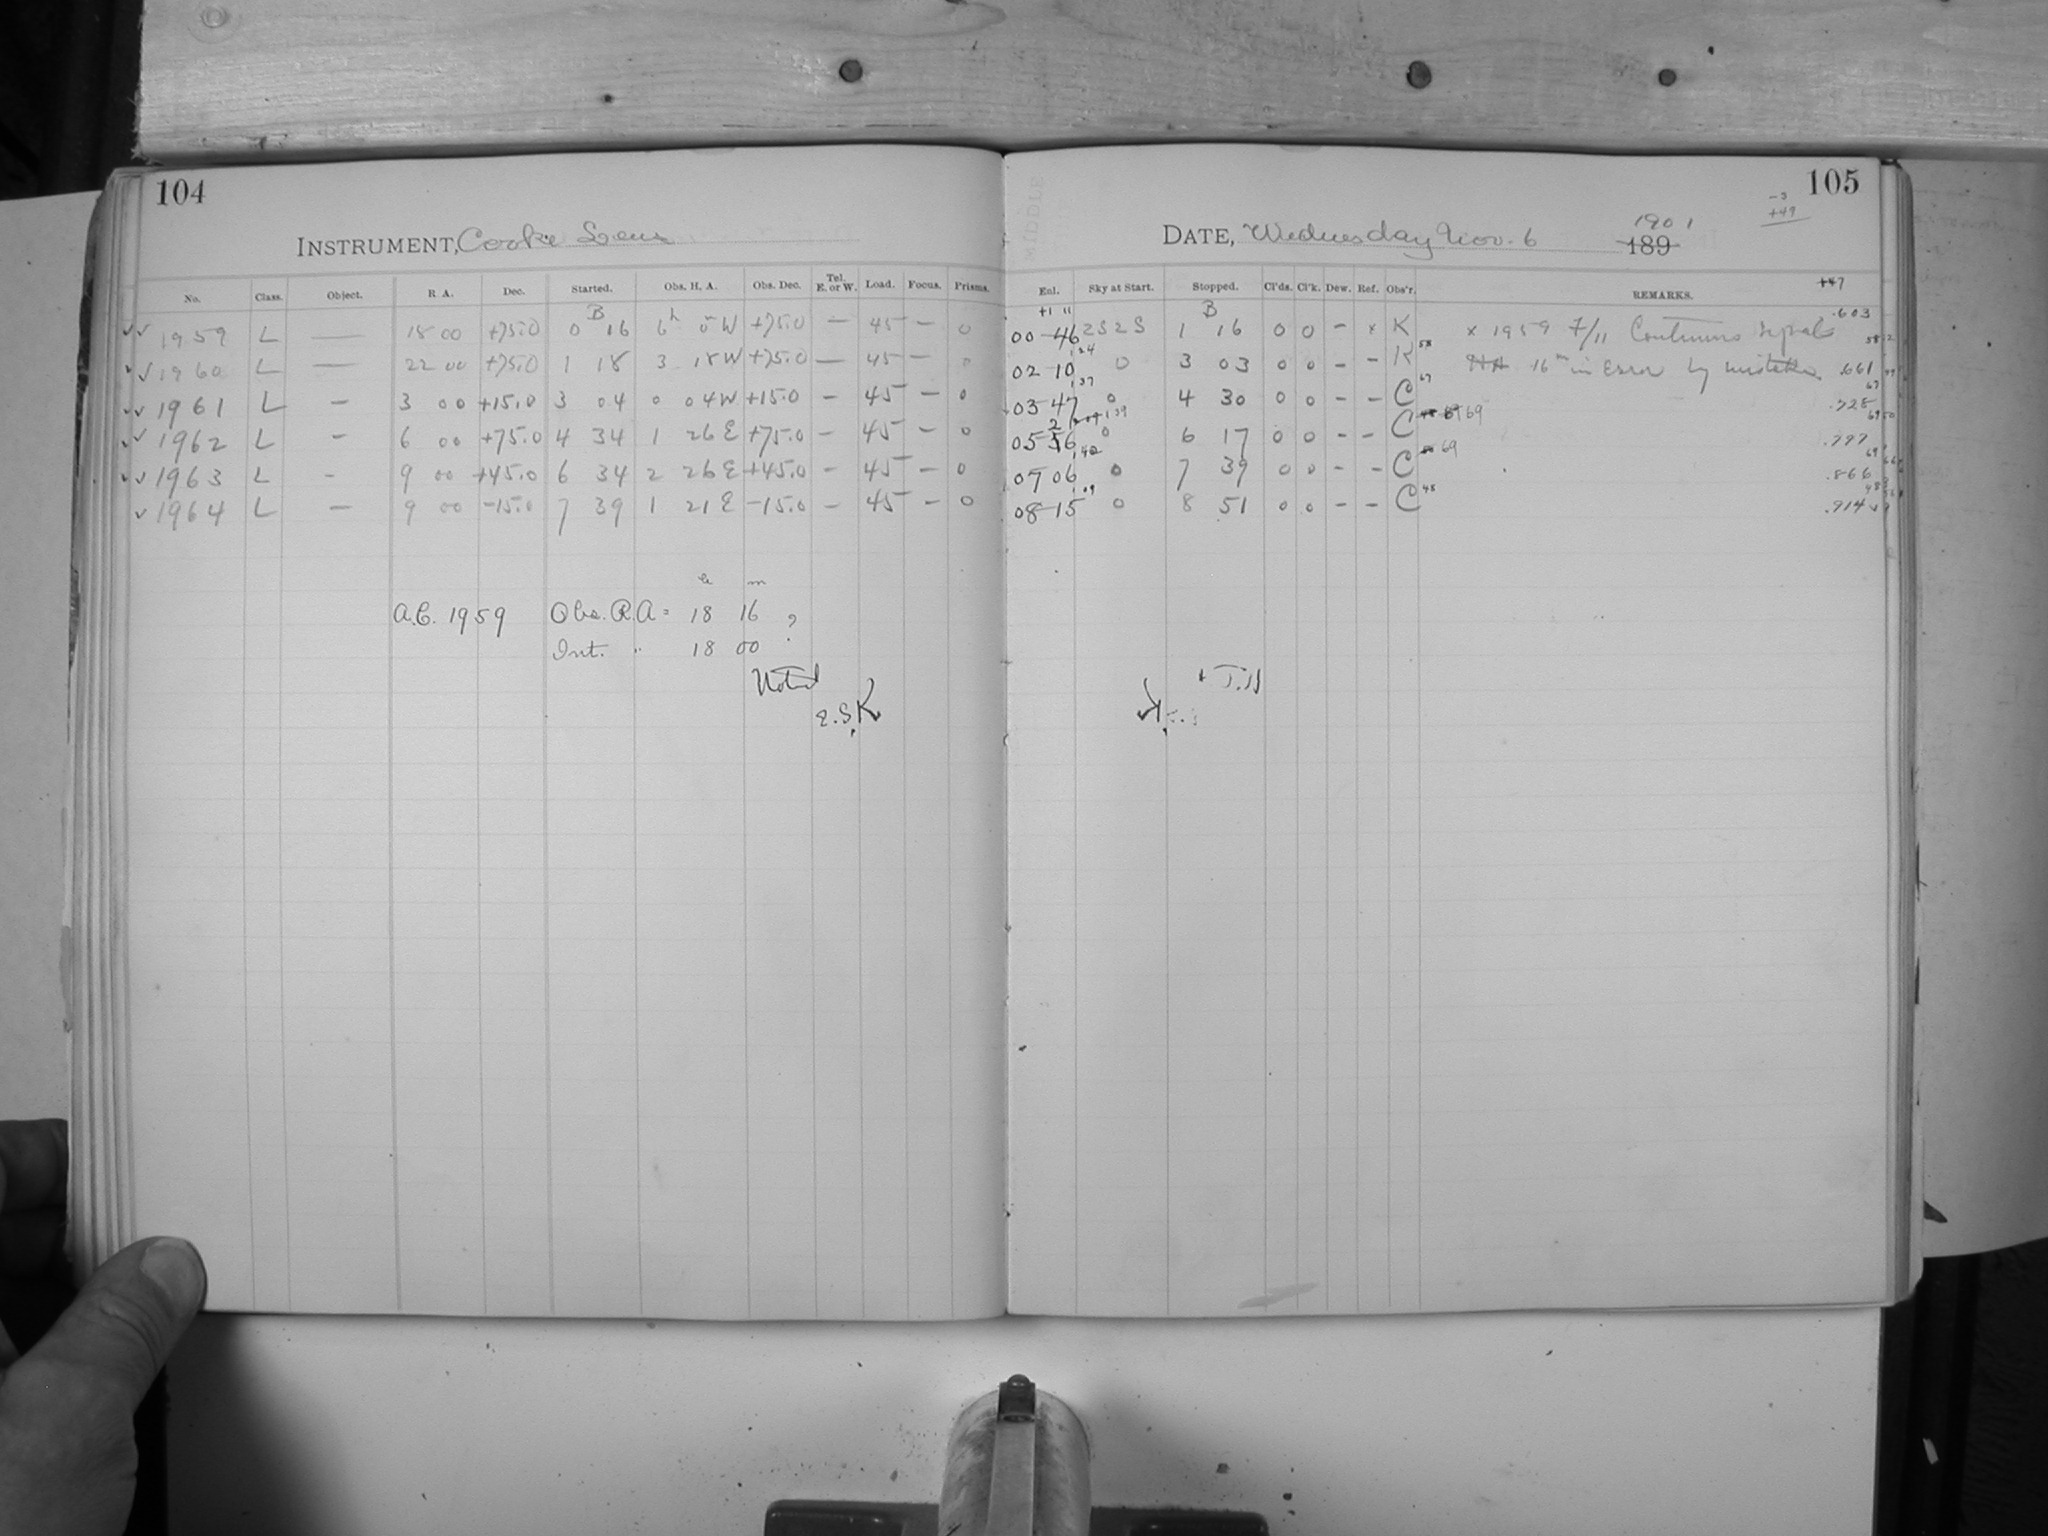 104
INSTRUMENT, Cooke Lens
No. Class. Object. R A. Dec. Started. Obs. H. A. Obs. Dec. Tel. E. or W. Load. Focus. Prisms.
B
√√ 1959 L — 18 00 +75.0 0 16 6h 0 W +75.0 — 45 — 0
√√ 1960 L — 22 00 +75.0 1 18 3 18 W +75.0 — 45 — 0
√√ 1961 L — 3 00 +15.0 3 04 0 04 W +15.0 — 45 — 0
√√ 1962 L — 6 00 +75.0 4 34 1 26 E +75.0 — 45 — 0
√√ 1963 L - 9 00 +45.0 6 34 2 26 E +45.0 — 45 — 0
√ 1964 L — 9 00 -15.0 7 39 1 21 E -15.0 — 45 — 0
h m
A.C. 1959 Obs. R.A = 18 16 ?
Int. " 18 00
Noted
E.S.K
105
-2
+49
DATE, Wednesday Nov. 6 1901
189
+47
Enl. Sky at Start. Stopped. Cl'ds. Cl'k. Dew. Ref. Obs'r. REMARKS.
+1 11 B .603
00 46 2S2S 1 16 0 0 - x K x 1959 F/11 Continuous signals
1 24 58
02 10 0 3 03 0 0 - - K 16m in Error by mistake .661
1 37 67
03 47 0 4 30 0 0 - - C .728
05 56 0 6 17 0 0 - - C 69 .797
07 06 0 7 39 0 0 - - C 69 .866
1 09 48
08 15 0 8 51 0 0 - - C .914